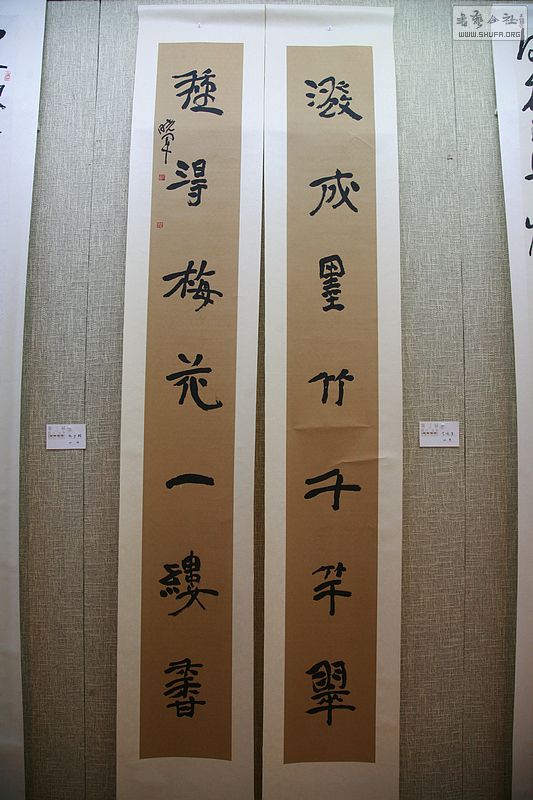 潑成墨竹千竿翠
種得梅花一縷香
曉軍
書藝公社
WWW.SHUFA.ORG